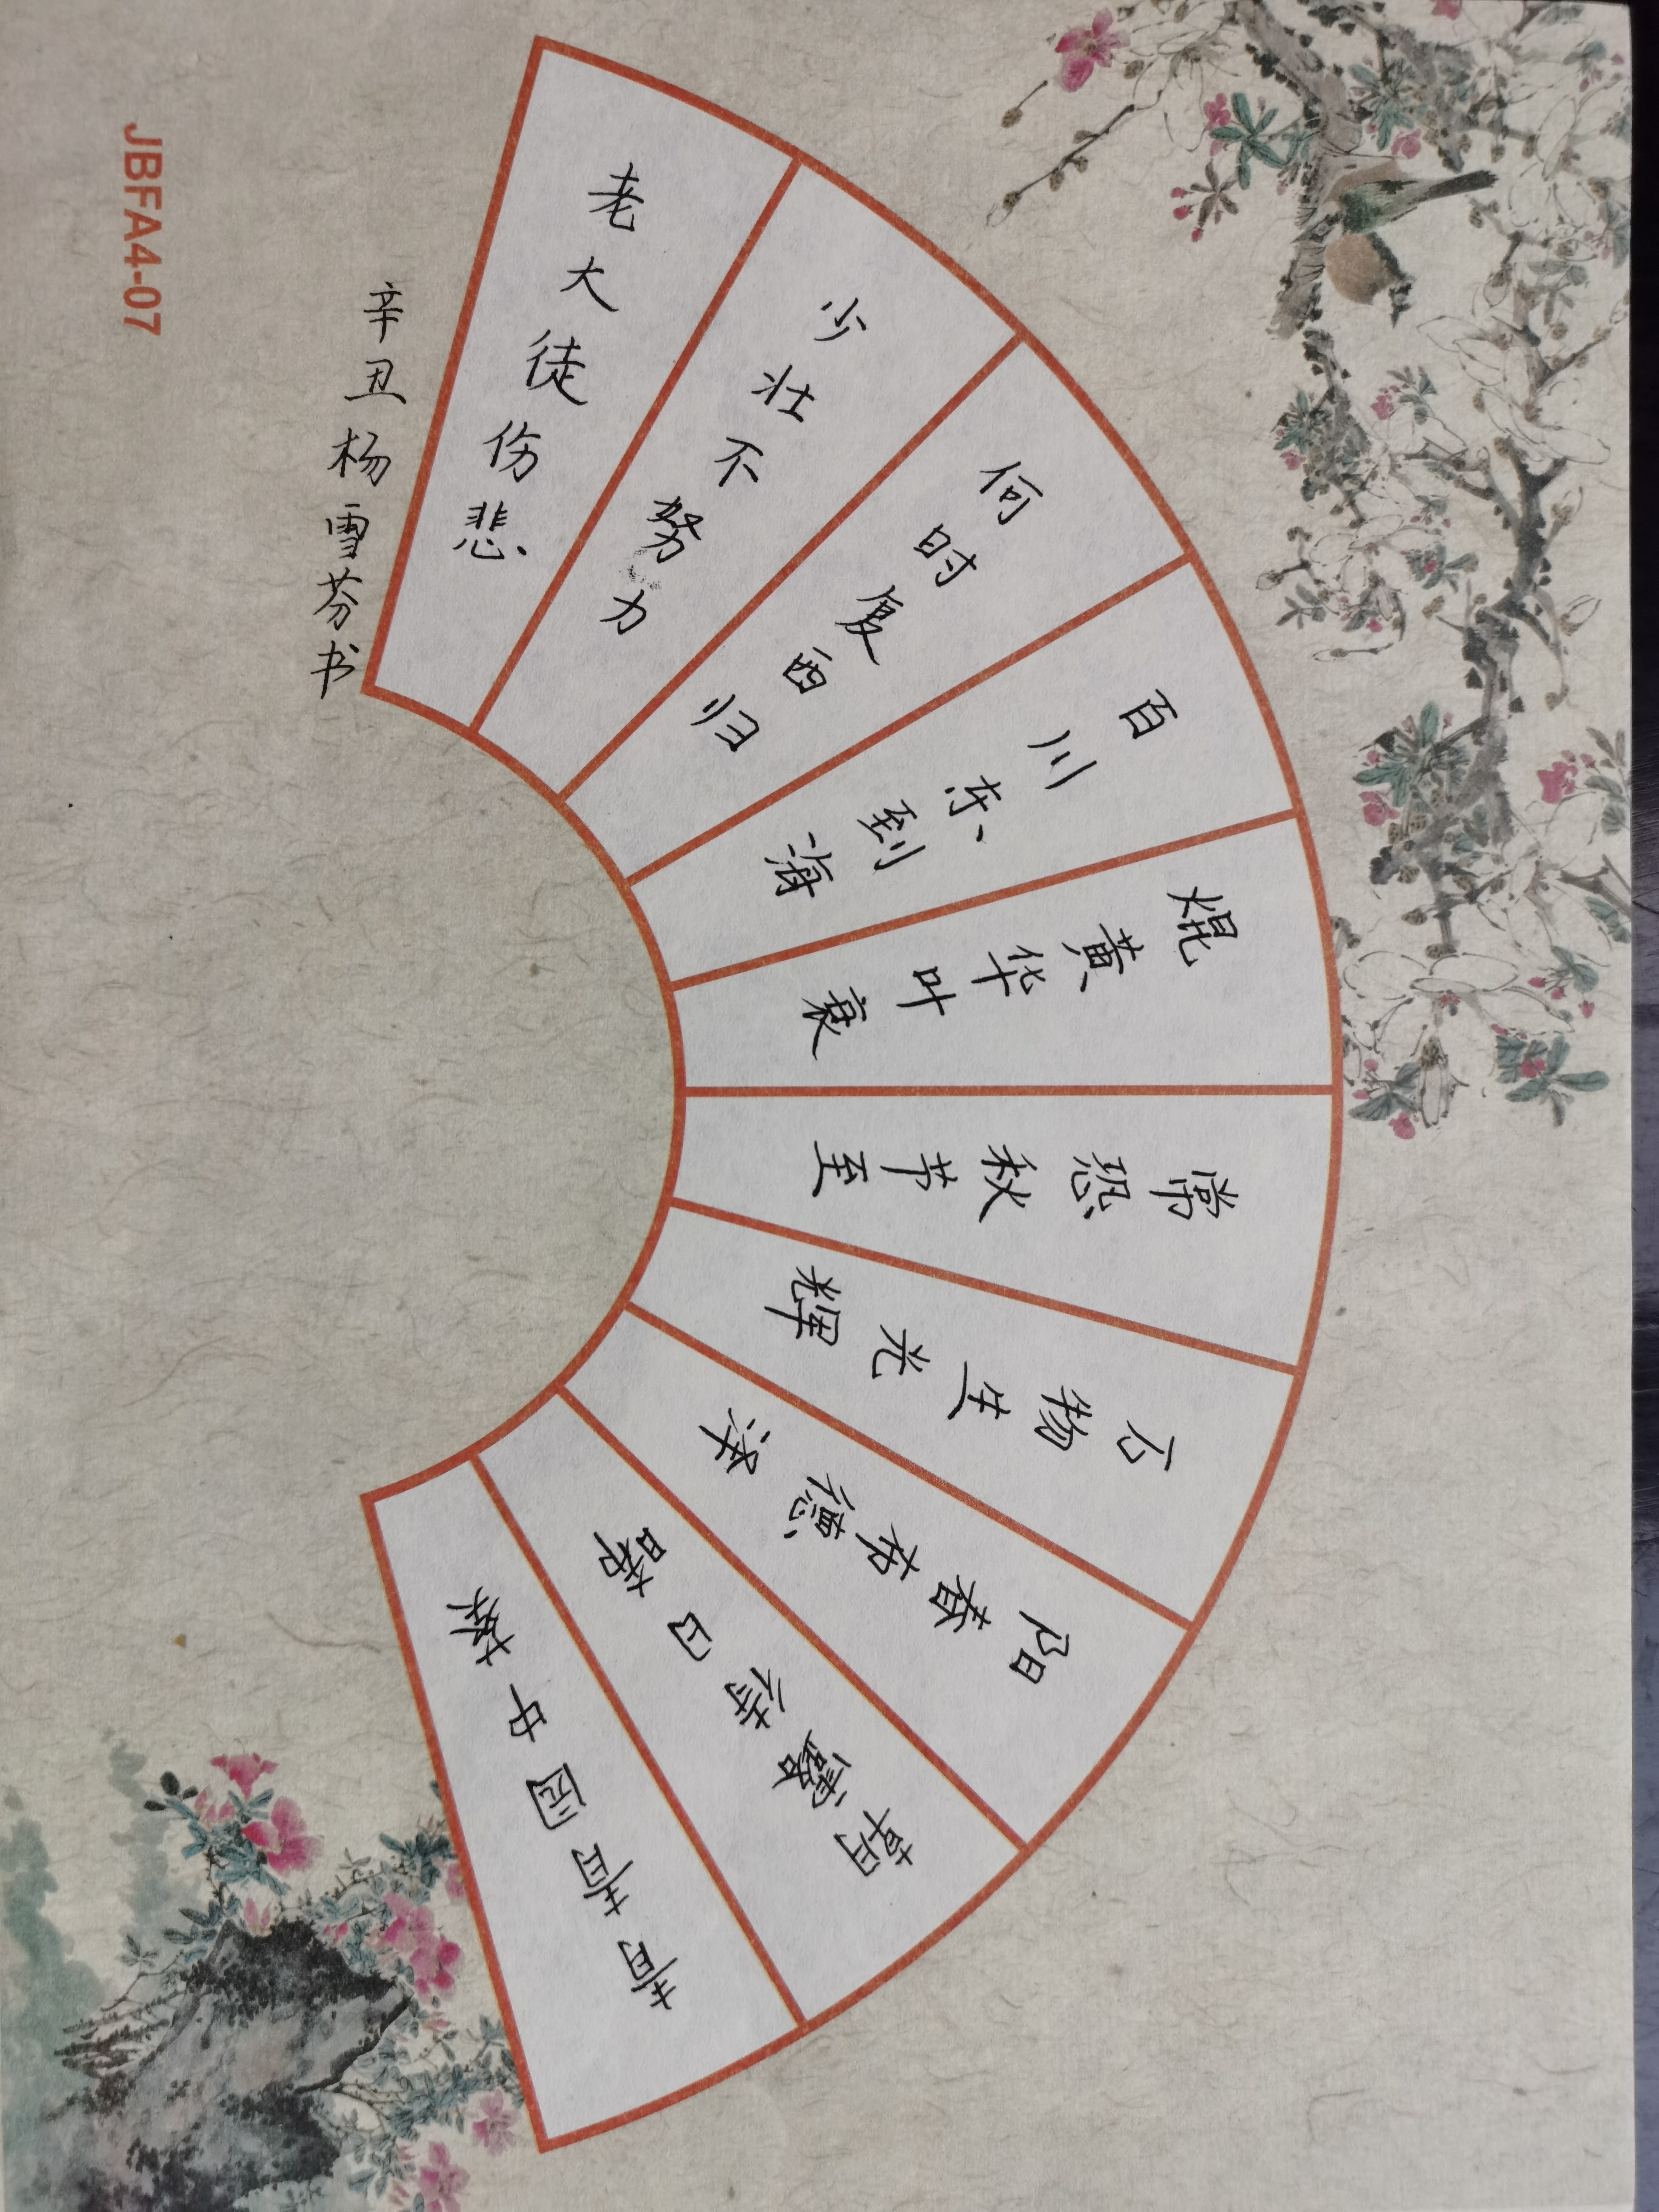 青青园中葵
朝露待日晞
阳春布德泽
万物生光辉
常恐秋节至
焜黄华叶衰
百川东到海
何时复西归
少壮不努力
老大徒伤悲
辛丑杨雪芬书
JBFA4-07